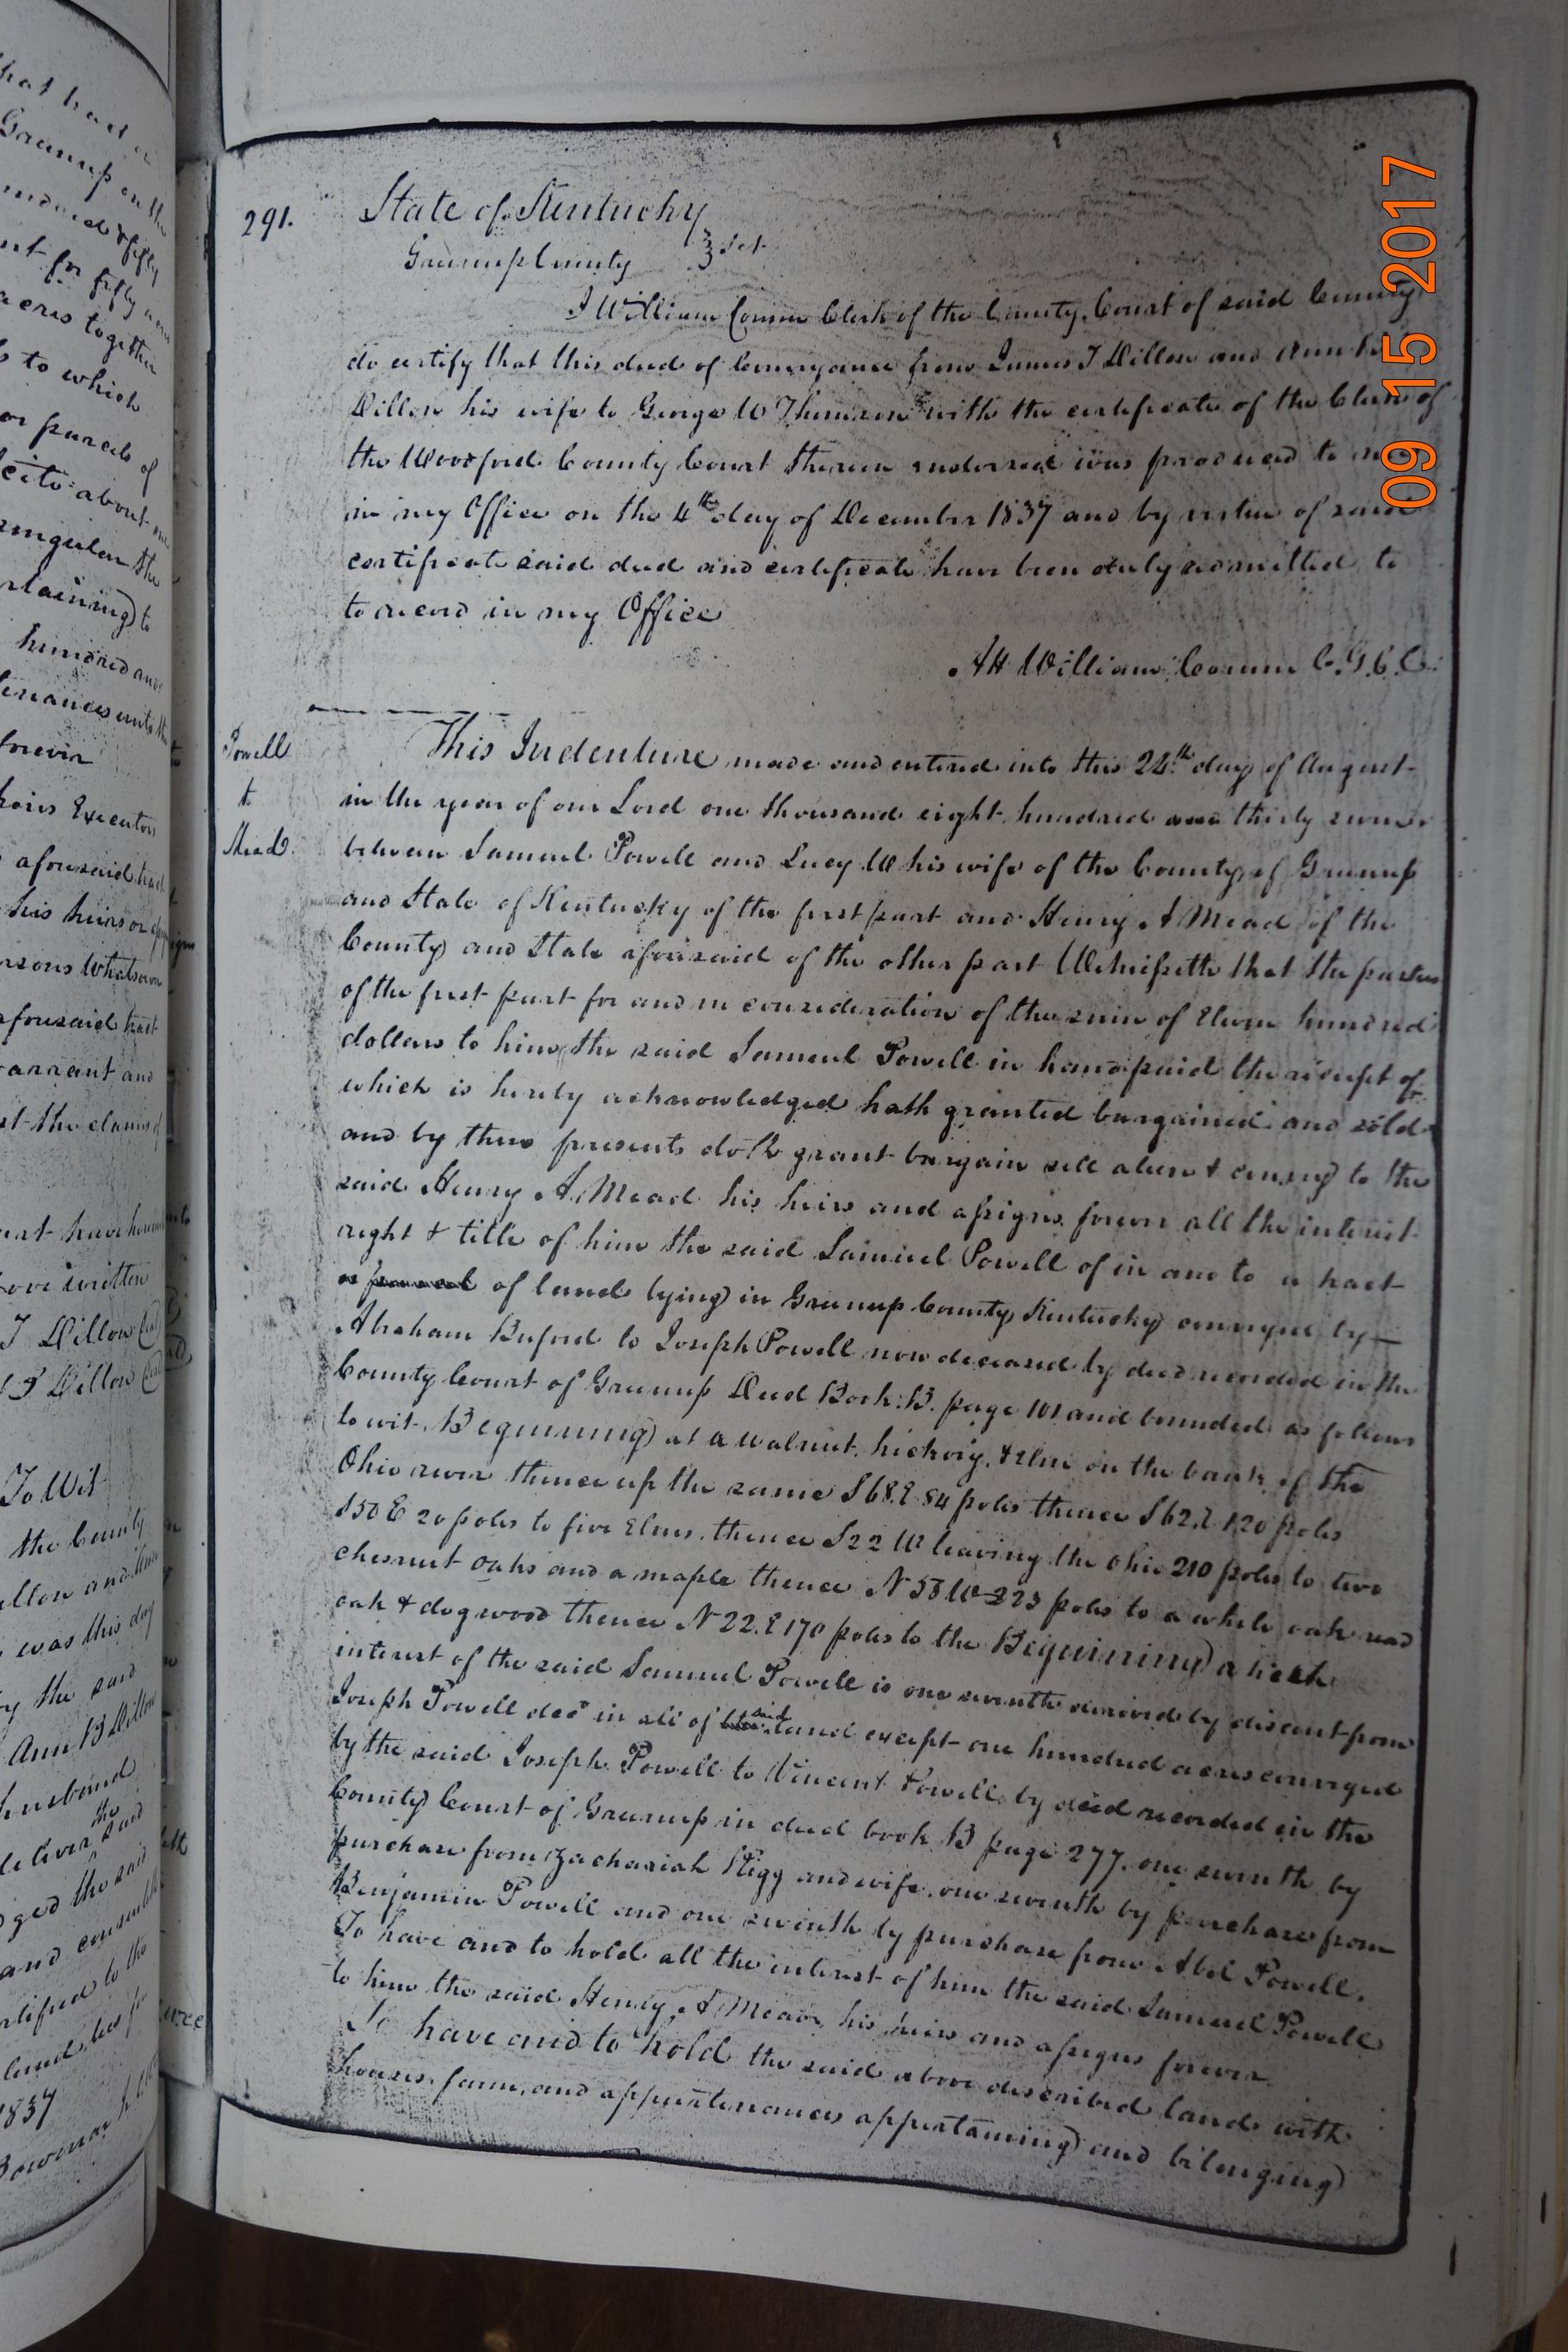 291.
State of Kentucky
Greenup County } Sct
I William Corum Clerk of the County Court of said County
do certify that this deed of Conveyance from James T Dillon and Ann B
Dillon his wife to George W Thomson with the certificate of the Clerk of
the Woodford County Court thereon endorsed was produced to me
in my Office on the 4th day of December 1837 and by virtue of said
certificate said deed and certificate have been duly admitted to
to record in my Office
Att William Corum C.G.C.C.
Powell
to
Mead.
This Indenture made and entered into this 24th day of August
in the year of our Lord one thousand eight hundred and thirty seven
between Samuel Powell and Lucy W his wife of the County of Greenup
and State of Kentucky of the first part and Henry A Mead of the
County and State aforesaid of the other part Witnesseth that the parties
of the first part for and in consideration of the sum of Eleven hundred
dollars to him the said Samuel Powell in hand paid the receipt of
which is hereby acknowledged hath granted bargained and sold
and by these presents doth grant bargain sell alien & convey to the
said Henry A. Mead his heirs and assigns forever all the interest
right & title of him the said Samuel Powell of in and to a tract
of land lying in Greenup County Kentucky conveyed by
Abraham Buford to Joseph Powell now deceased by deed recorded in the
County Court of Greenup Deed Book B. page 101 and bounded as follows
to wit. Beginning at a walnut, hickory, & Elm on the bank of the
Ohio river thence up the same S68.E 84 poles thence S62.E 120 poles
S50 E 20 poles to five Elms. thence S22 W leaving the Ohio 210 poles to two
chesnut oaks and a maple thence N 58 W 223 poles to a white oak read
oak & dogwood thence N 22.E 170 poles to the Beginning which
interest of the said Samuel Powell is one seventh derived by discent from
Joseph Powell decd in all of said land except one hundred acres conveyed
by the said Joseph Powell to Vincent Powell by deed recorded in the
County Court of Greenup in deed book B page 277. one seventh by
purchase from Zachariah Stigg and wife. one seventh by purchase from
Benjamin Powell and one seventh by purchase from Abel Powell.
To have and to hold all the interest of him the said Samuel Powell
to him the said Henry A Mead, his heirs and assigns forever
To have and to hold the said above described land with
houses, farm, and appurtenances appertaining and belonging
09 15 2017